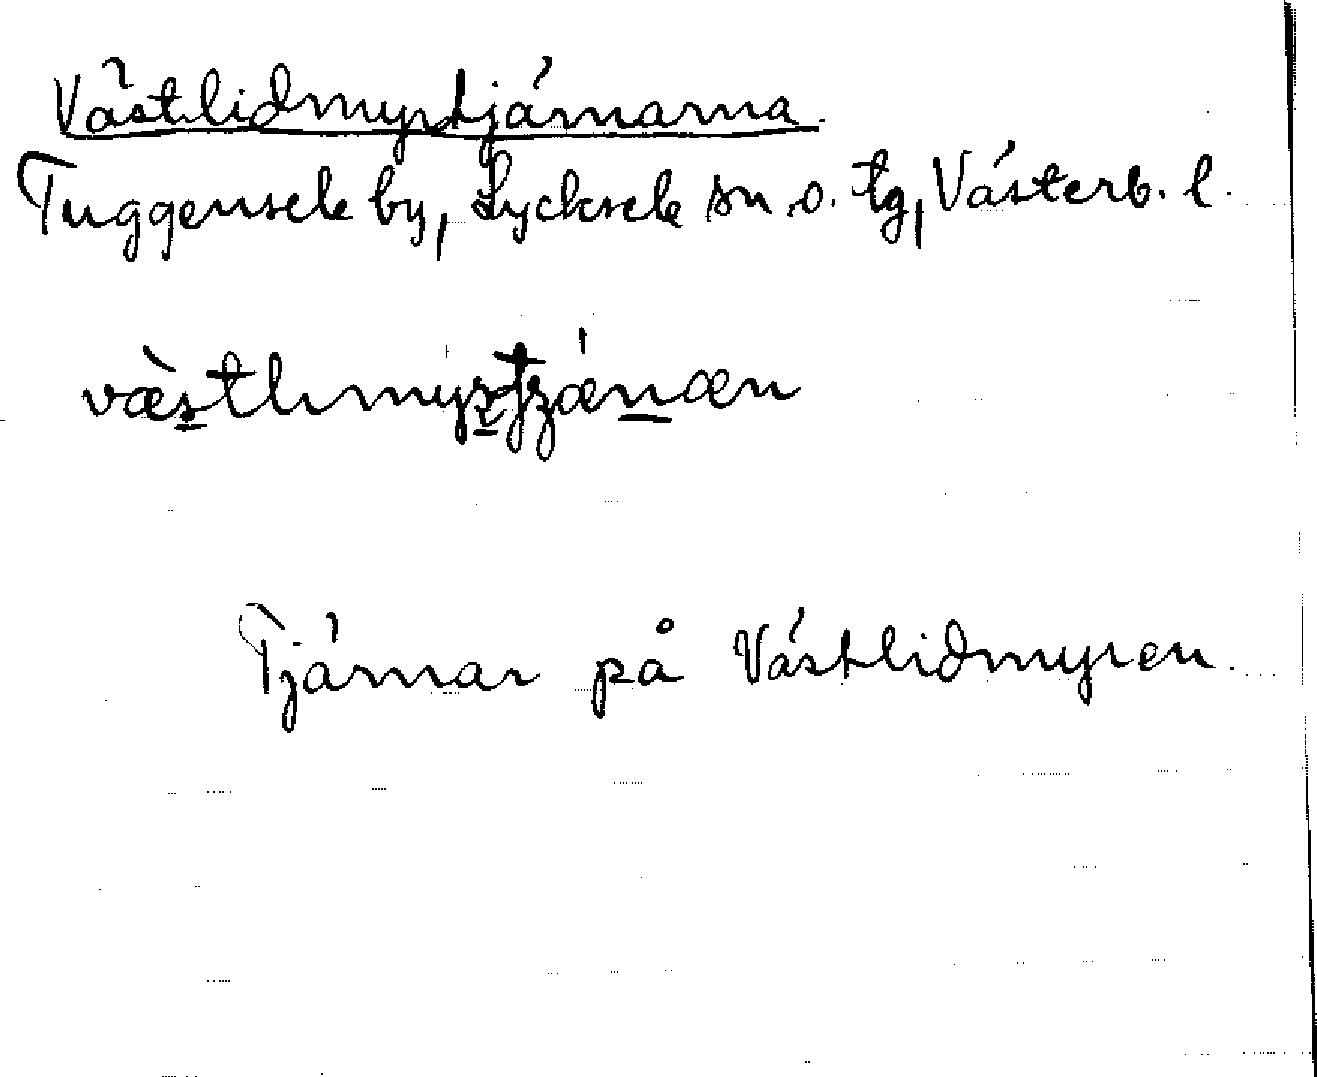 Västlidmyrtjärnarna.
Tuggensele by, Lycksele sn. o. tg, Västerb. l.
Tjärnar på Västlidmyren.